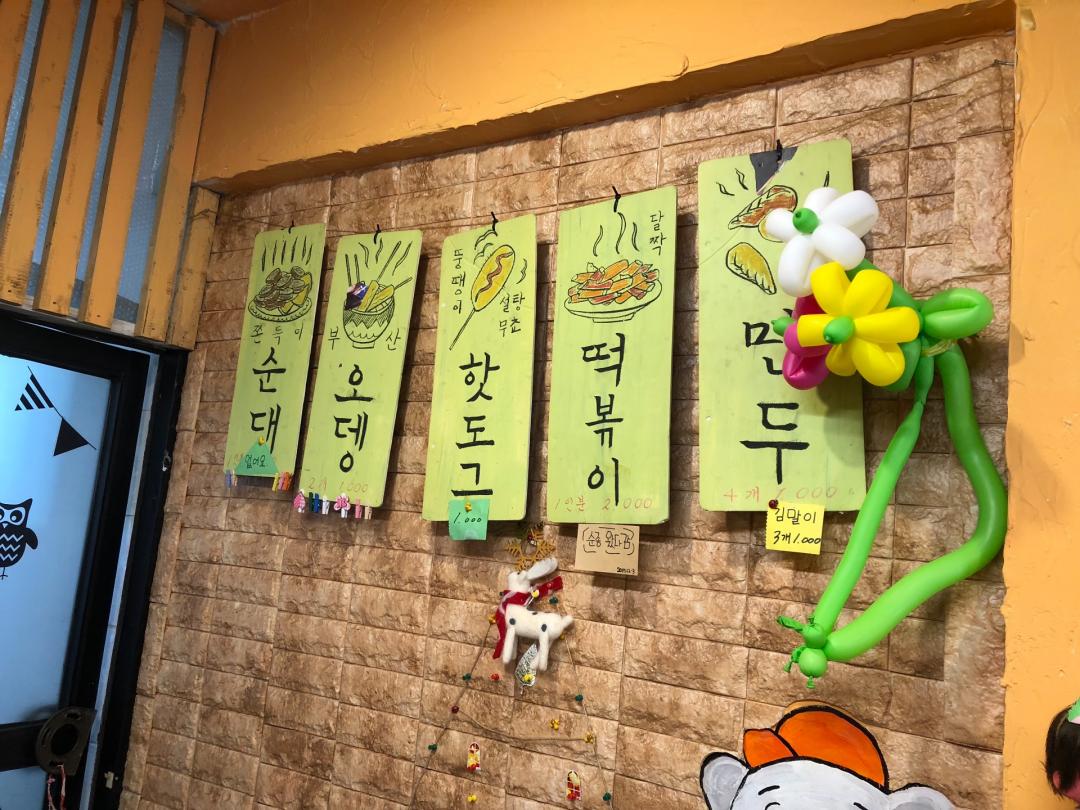 쫀득이
순대
없어요
부산
오뎅
2개 1,000
뚱땡이
설탕
무쵸
핫도그
1,000
달짝
떡볶이
1인분 2,000
순종 왔다감
만두
4개 1,000
김말이
3개 1,000